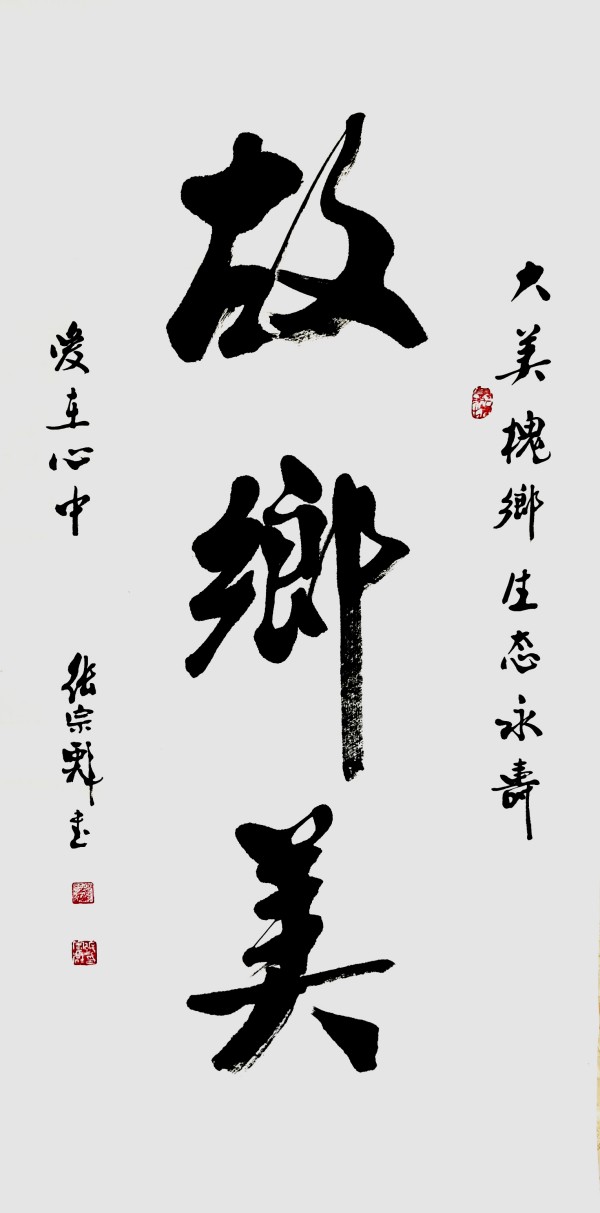 大美槐鄉生态永壽
故鄉美
愛在心中
张宗彪书